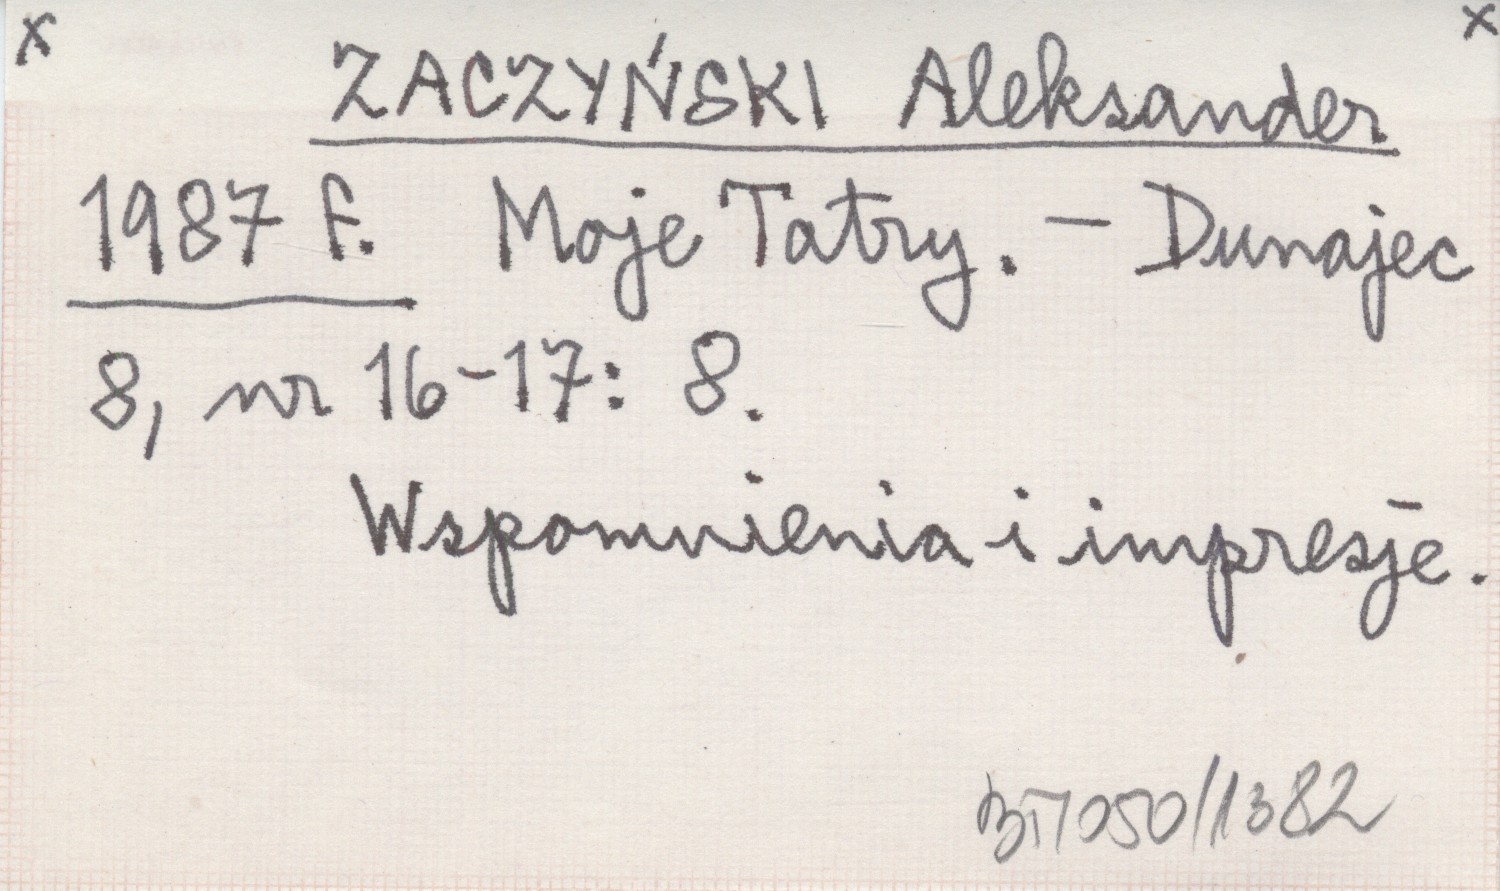 x x
ZACZYŃSKI Aleksander
1987 F. Moje Tatry. - Dunajec
8, nr 16-17: 8.
Wspomnienia i impresje.
BT/050/1382